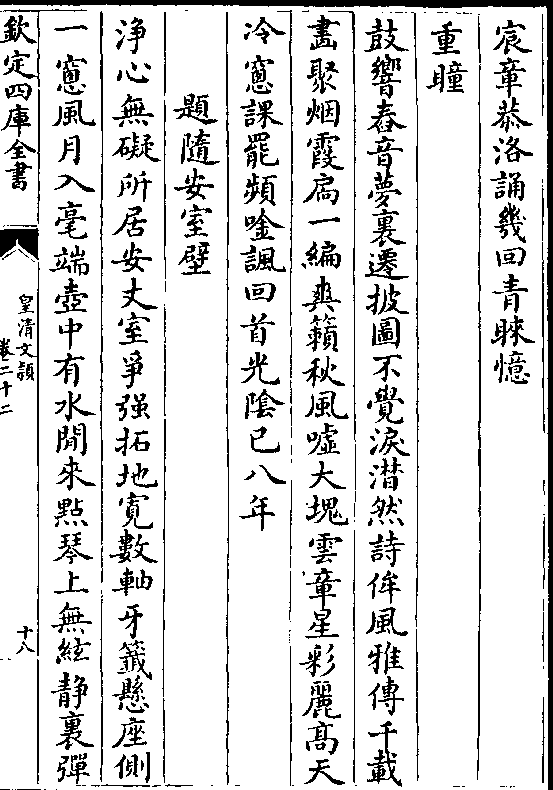 宸章恭洛誦幾回青睞憶
重瞳
鼓響舂音夢裏遷披圖不覺淚潸然詩侔風雅傳千載
畫聚烟霞扄一編爽籟秋風噓大塊雲章星彩麗高天
冷窻課罷頻唫諷回首光陰已八年
題隨安室壁
浄心無礙所居安丈室爭强拓地寛數軸牙籤懸座側
一窻風月入毫端壺中有水閒來㸃琴上無絃静裏彈
欽定四庫全書
皇清文頴
卷二十二
十八